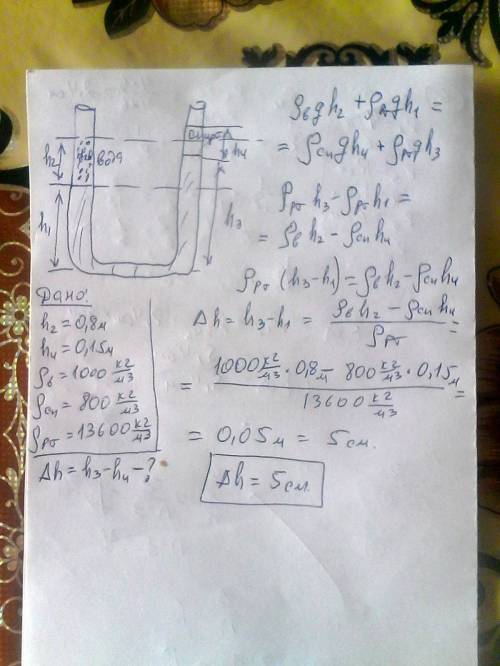 h₂
вода
спирт
h₄
h₁
h₃
ρв g h₂ + ρрт g h₁ =
= ρсп g h₄ + ρрт g h₃
ρрт h₃ - ρрт h₁ =
= ρв h₂ - ρсп h₄
ρрт (h₃ - h₁) = ρв h₂ - ρсп h₄
Δh = h₃ - h₁ = (ρв h₂ - ρсп h₄) / ρрт =
= (1000 кг/м3 · 0,8м - 800 кг/м3 · 0,15м) / 13600 кг/м3 =
= 0,05м = 5см.
Δh = 5см.
Дано:
h₂ = 0,8м
h₄ = 0,15м
ρв = 1000 кг/м3
ρсп = 800 кг/м3
ρрт = 13600 кг/м3
Δh = h₃ - h₄ - ?